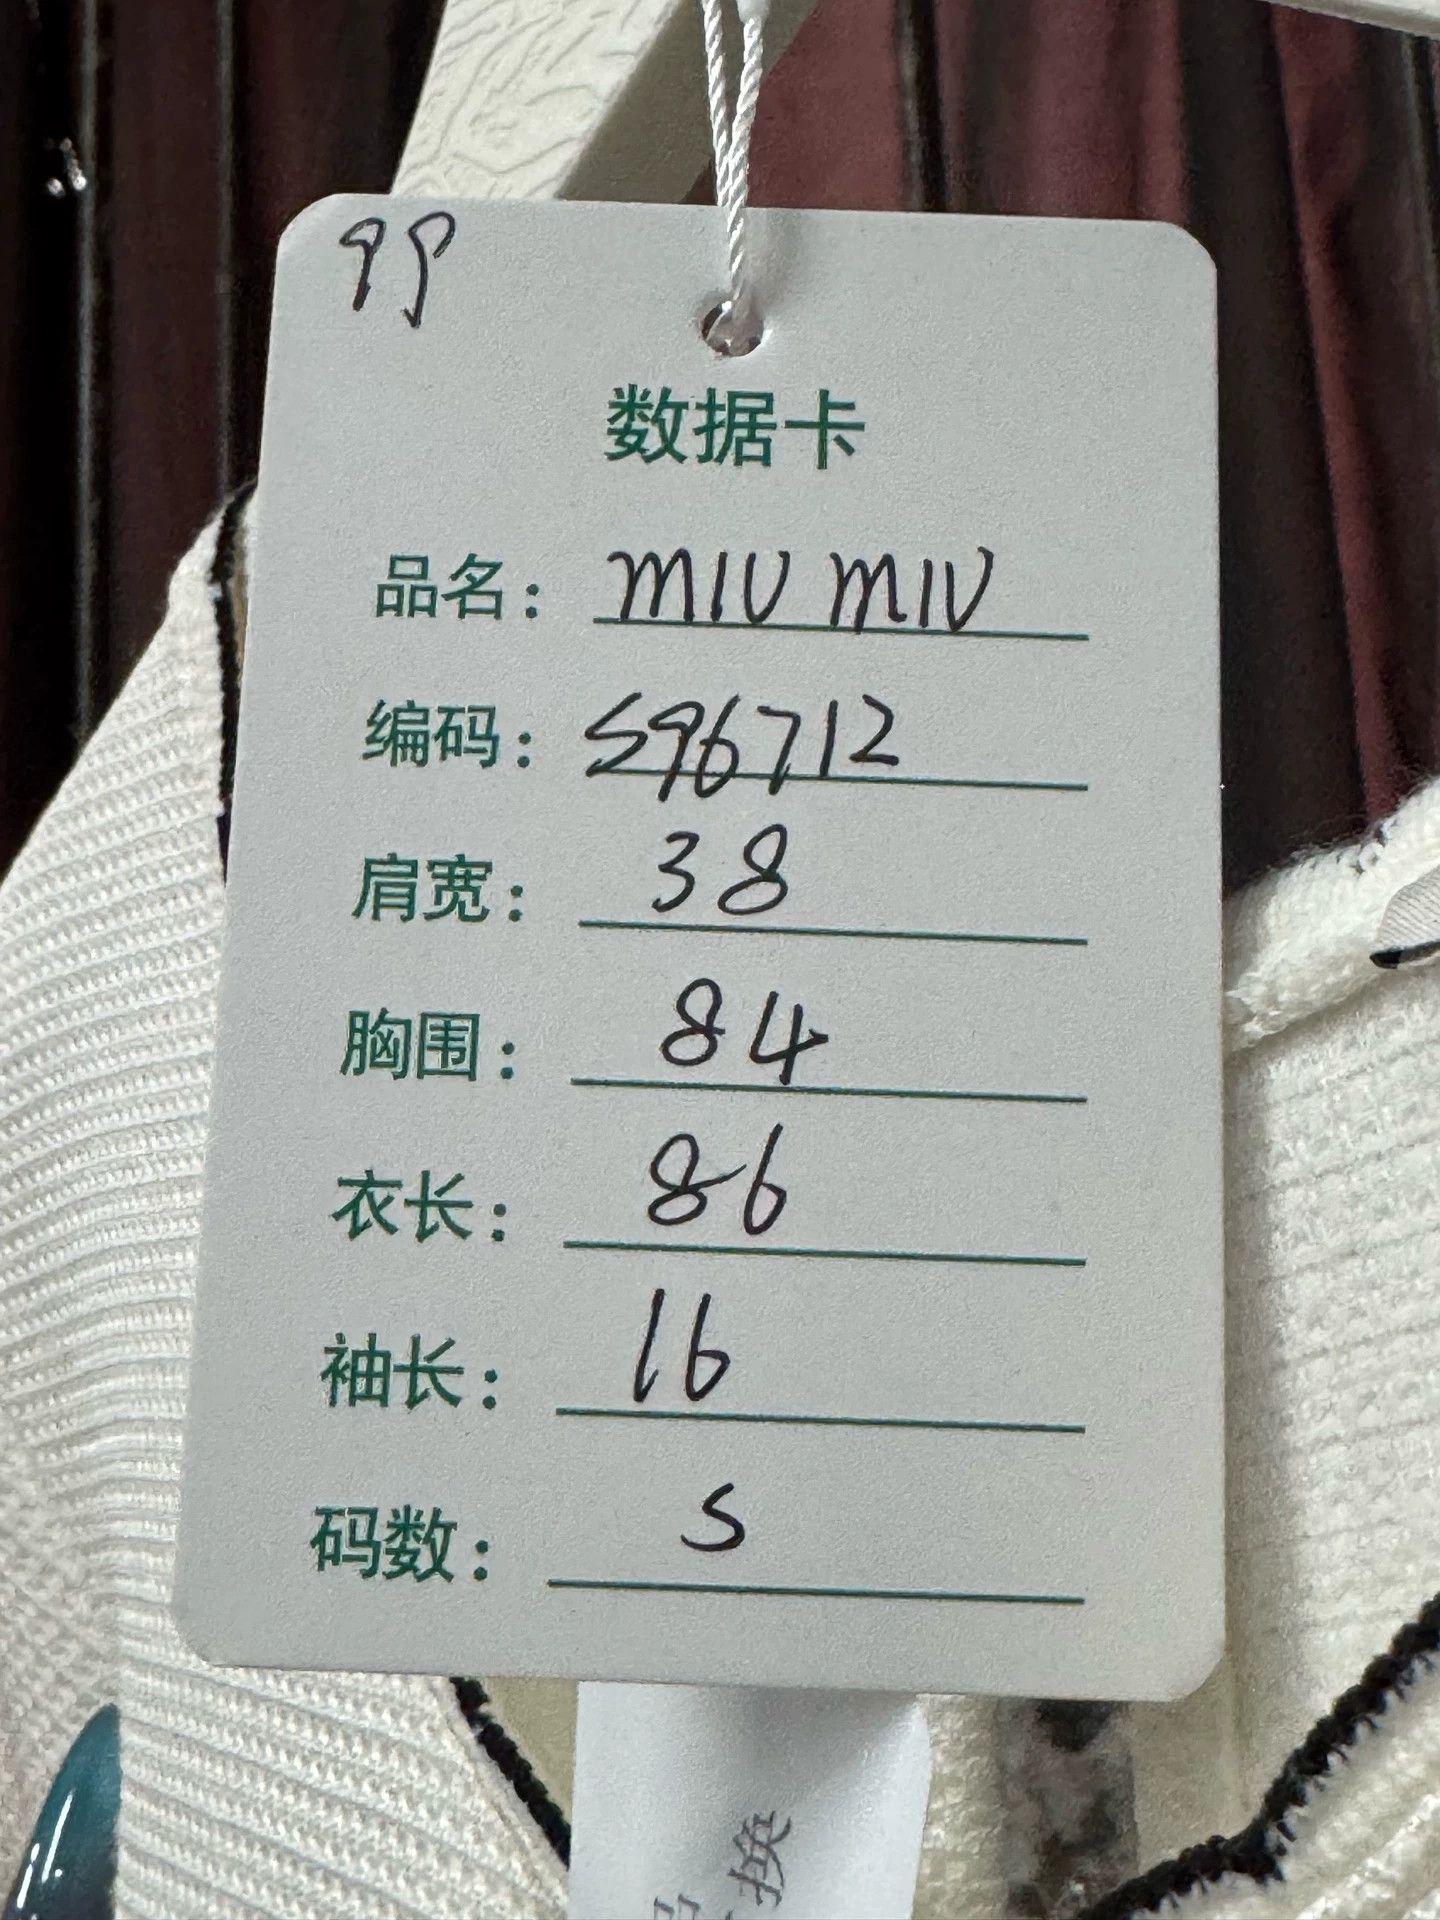 99
数据卡
品名：MIU MIU
编码：S96712
肩宽：38
胸围：84
衣长：86
袖长：16
码数：S
换